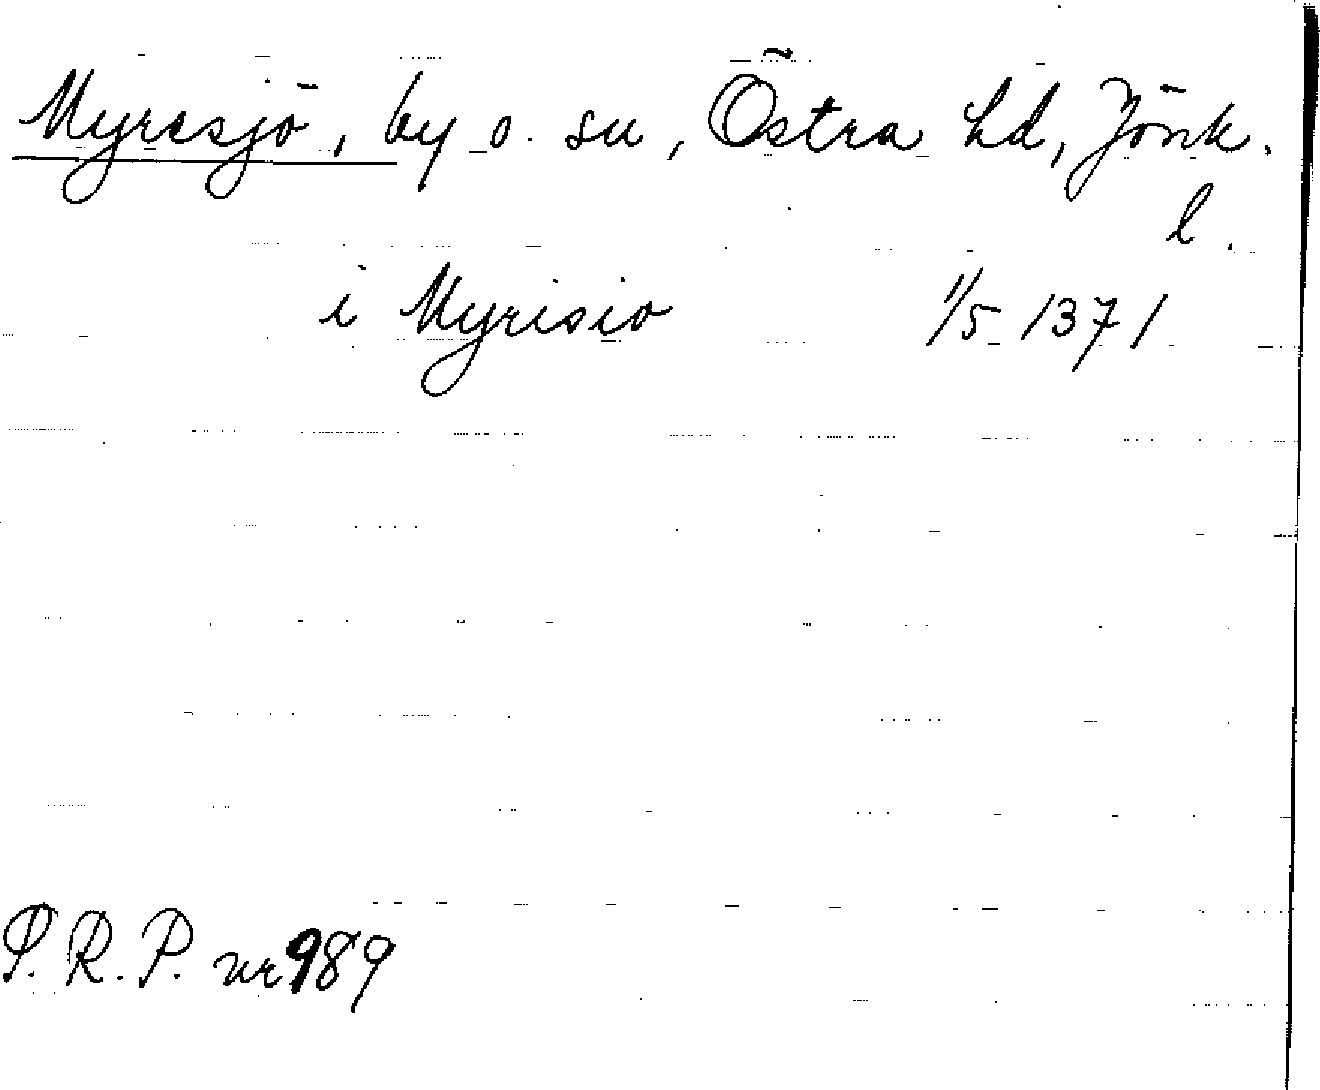 Myresjö, by o. sn, Östra hd, Jönk.
l.
i Myrisio 1/5 1371
S.R.P. nr 989